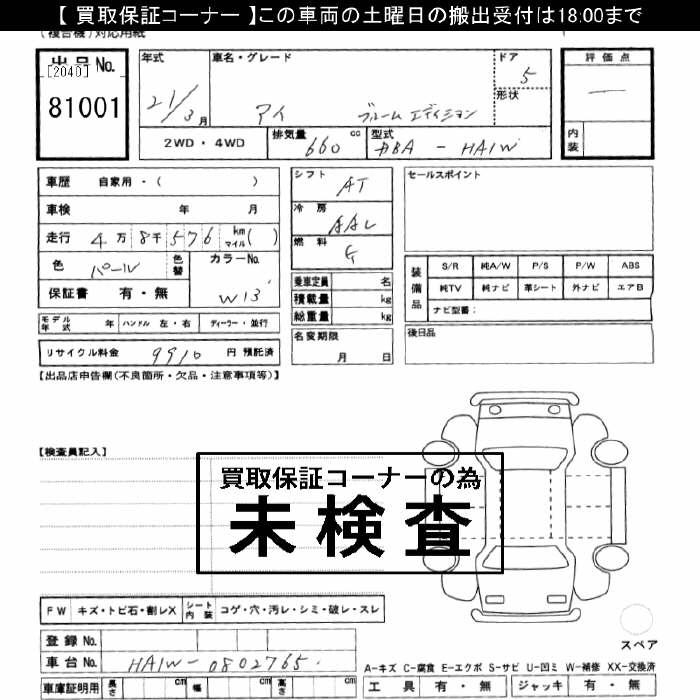 【 買取保証コーナー 】この車両の土曜日の搬出受付は18:00まで
(複合機)対応用紙
出品 No.
[2040]
81001
年式
21/3月
車名・グレード
アイ ブルームエディション
ドア
5
形状
評価点
—
内装
2WD・4WD
排気量 660 cc
型式 DBA - HA1W
車歴 自家用・( )
車検 年 月
走行 4万8千576 km マイル( )
色 パール
色替
カラーNo.
W13
保証書 有・無
シフト AT
冷房 AAC
燃料 G
乗車定員 名
積載量 kg
総重量 kg
セールスポイント
装備品
S/R 純A/W P/S P/W ABS
純TV 純ナビ 革シート 外ナビ エアB
ナビ型番:
モデル年式 年 ハンドル 左・右 ディーラー・並行
名変期限
月 日
後日品
リサイクル料金 9910 円 預託済
【出品店申告欄(不良箇所・欠品・注意事項等)】
【検査員記入】
買取保証コーナーの為
未検査
FW キズ・トビ石・割レX シート内装 コゲ・穴・汚レ・シミ・破レ・スレ
スペア
登録 No.
車台No. HA1W-0802765.
A-キズ C-腐食 E-エクボ S-サビ U-凹ミ W-補修 XX-交換済
車庫証明用 長さ cm 幅 cm 高さ cm
工具 有・無 ジャッキ 有・無